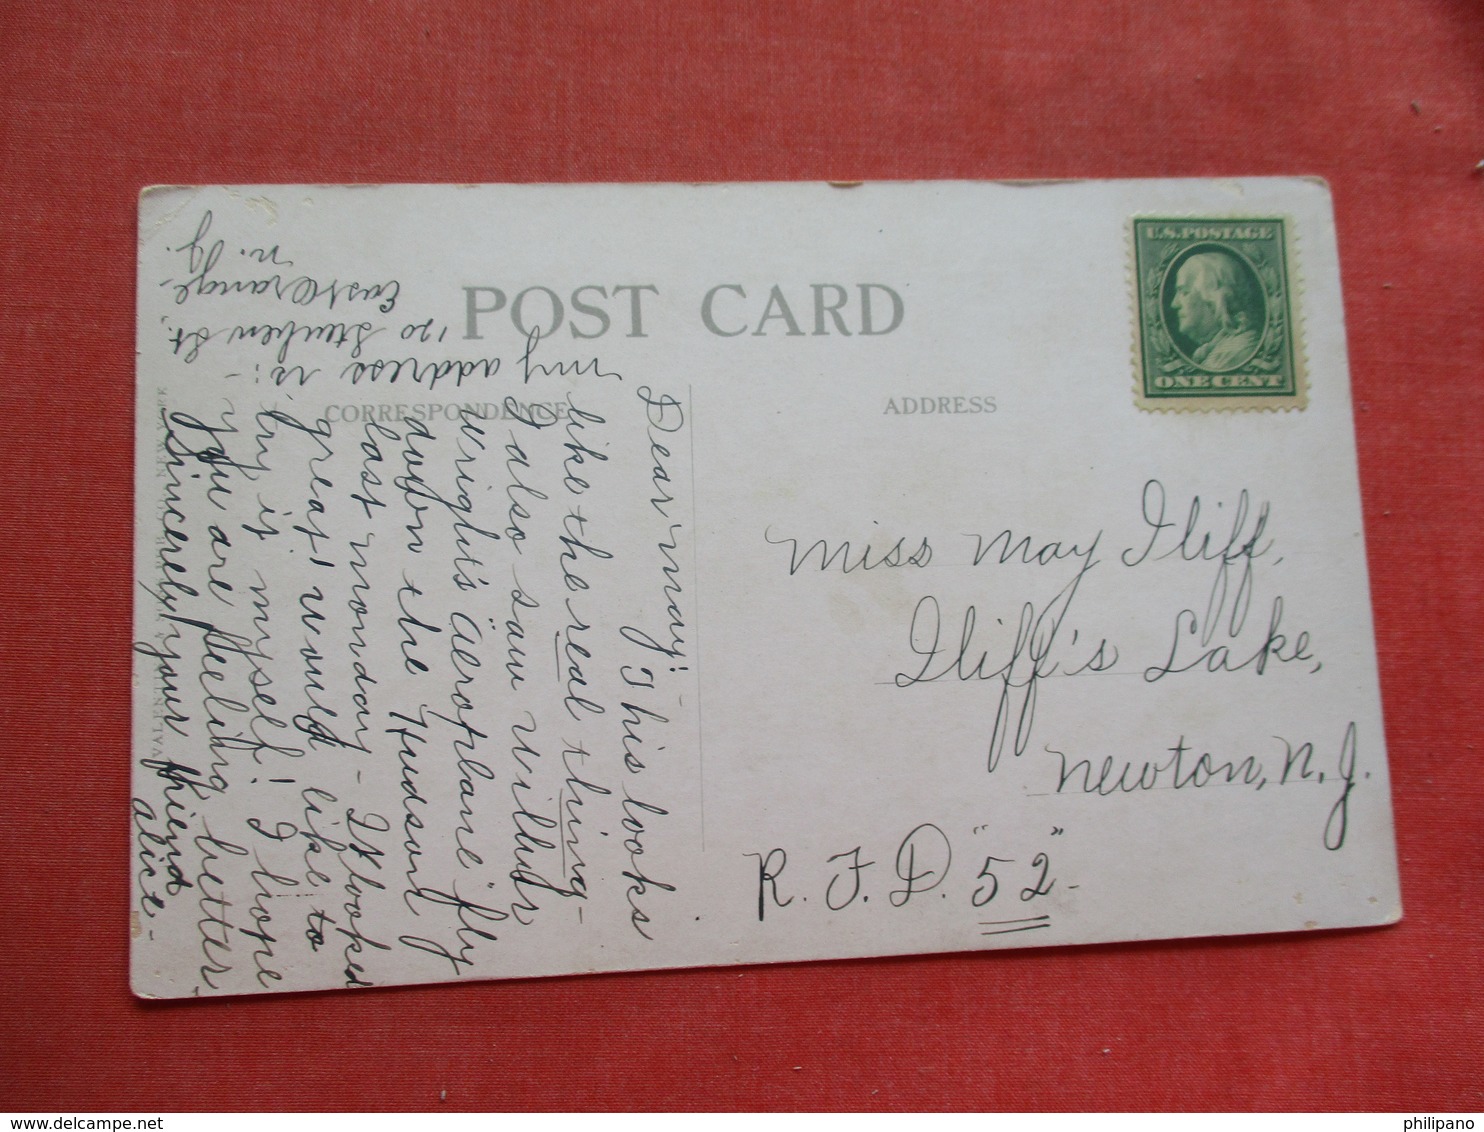 U.S. POSTAGE
ONE CENT
POST CARD
CORRESPONDENCE
ADDRESS
Dear May:- This looks
like the real thing-
I also saw Wilbur
Wright's "Aeroplane" fly
down the Hudson
last Monday- It looked
great! Would like to
try it myself! I hope
you are feeling better-
Sincerely your friend
Alice-
My address is:-
120 Steuben St.,
East Orange-
N. J.
Miss May Iliff,
Iliff's Lake,
Newton, N. J.
R. F. D. "52"-
delcampe.net
philipano